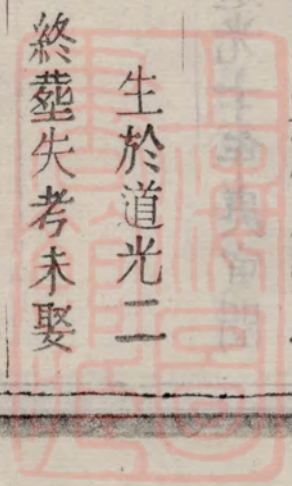 生於道光二
終塟失考未娶